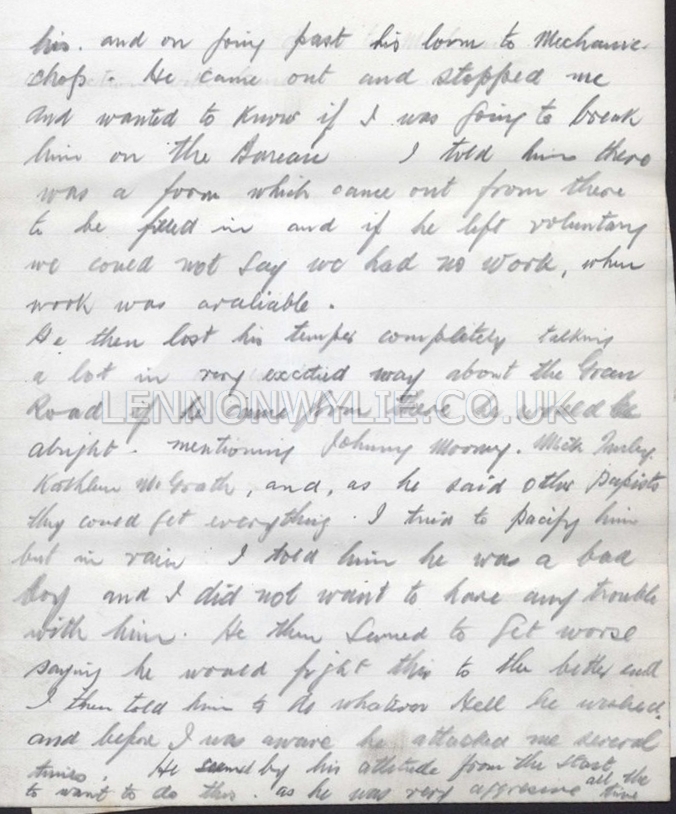 his. and on going past his loom to Mechanic
shop. He came out and stopped me
and wanted to know if I was going to break
him on the Bureau I told him there
was a form which came out from there
to be filled in and if he left voluntary
we could not say we had no work, when
work was avaliable.
He then lost his temper completely talking
a lot in very excited way about the Green
Road if he came from there he would be
LENNONWYLIE.CO.UK
alright. mentioning Johnny Mooney. Mick Turley.
Kathleen McGrath, and, as he said other Papists
they could get everything. I tried to pacify him
but in vain I told him he was a bad
boy and I did not want to have any trouble
with him. He then seemed to get worse
saying he would fight this to the better end
I then told him to do whatever Hell he wished.
and before I was aware he attacked me several
times. He seemed by his attitude from the start
to want to do this. as he was very aggressive all the
time